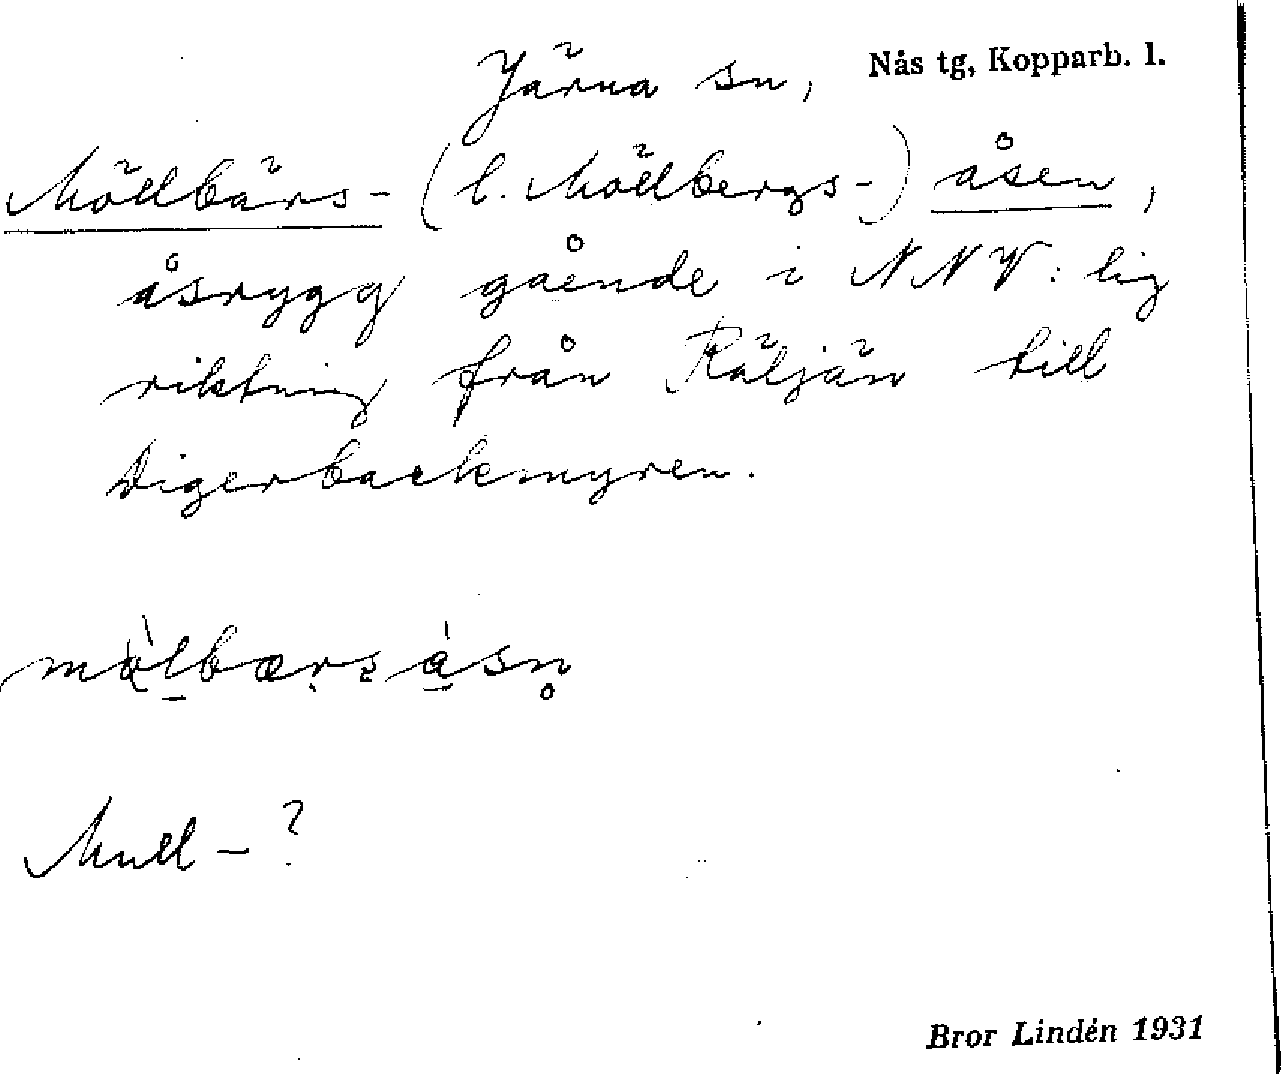 Järna sn, Nås tg, Kopparb. l.
Möllbärs- (l. Möllbergs-) åsen,
åsrygg gående i NNV:lig
riktning från Räljän till
Digerbackmyren.
Mull-?
Bror Lindén 1931